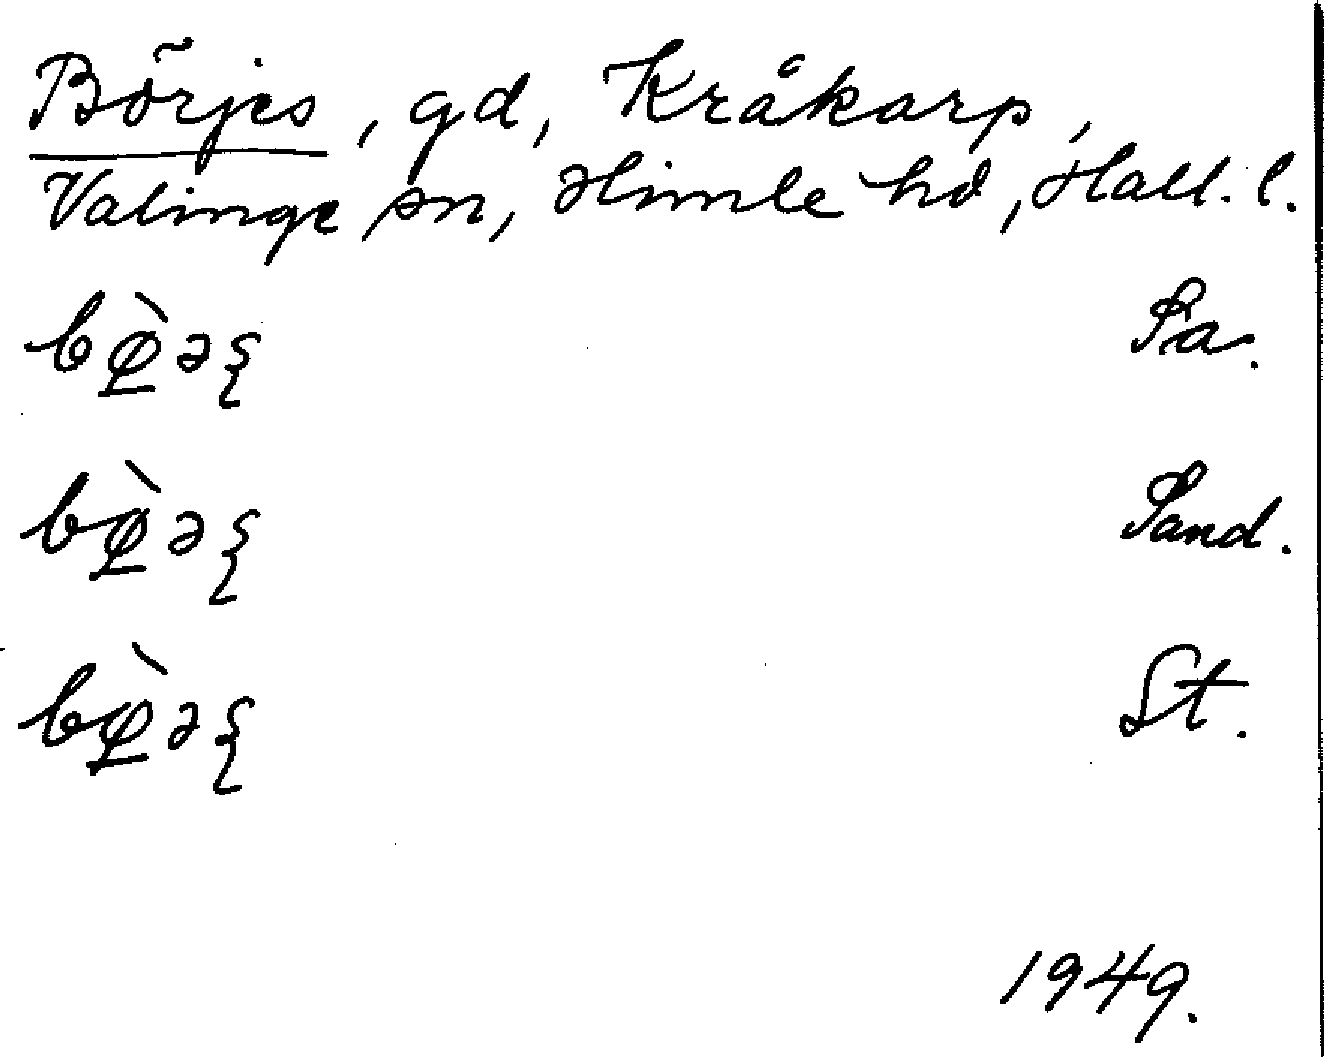 Börjes, gd, Kråkarp,
Valinge sn, Himle hd, Hall. l.
bø̠̀əş Pa.
bø̠̀əş Sand.
bø̠̀əş St.
1949.